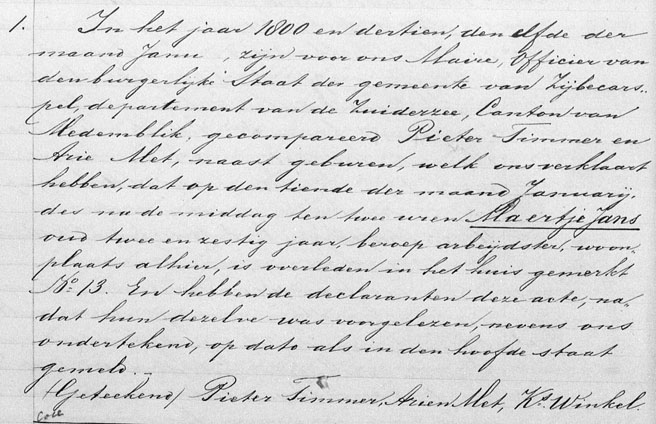 1. In het jaar 1800 en dertien, den elfde der
maand Janu , zijn voor ons Maire, Officier van
den burgerlijke Staat der gemeente van Zijbecars-
pel, departement van de Zuiderzee, Canton van
Medemblik, gecompareerd Pieter Timmer en
Arie Met, naast geburen, welk ons verklaart
hebben, dat op den tiende der maand Januarij,
des na de middag ten twee uren Maertje Jans
oud twee en zestig jaar, beroep arbeijdster, woon-
plaats alhier, is overleden in het huis gemerkt
No. 13. En hebben de declaranten deze acte, na-
dat hun dezelve was voorgelezen, nevens ons
ondertekend, op dato als in den hoofde staat
gemeld.
(Geteekend) Pieter Timmer, Arien Met, Ks. Winkel.